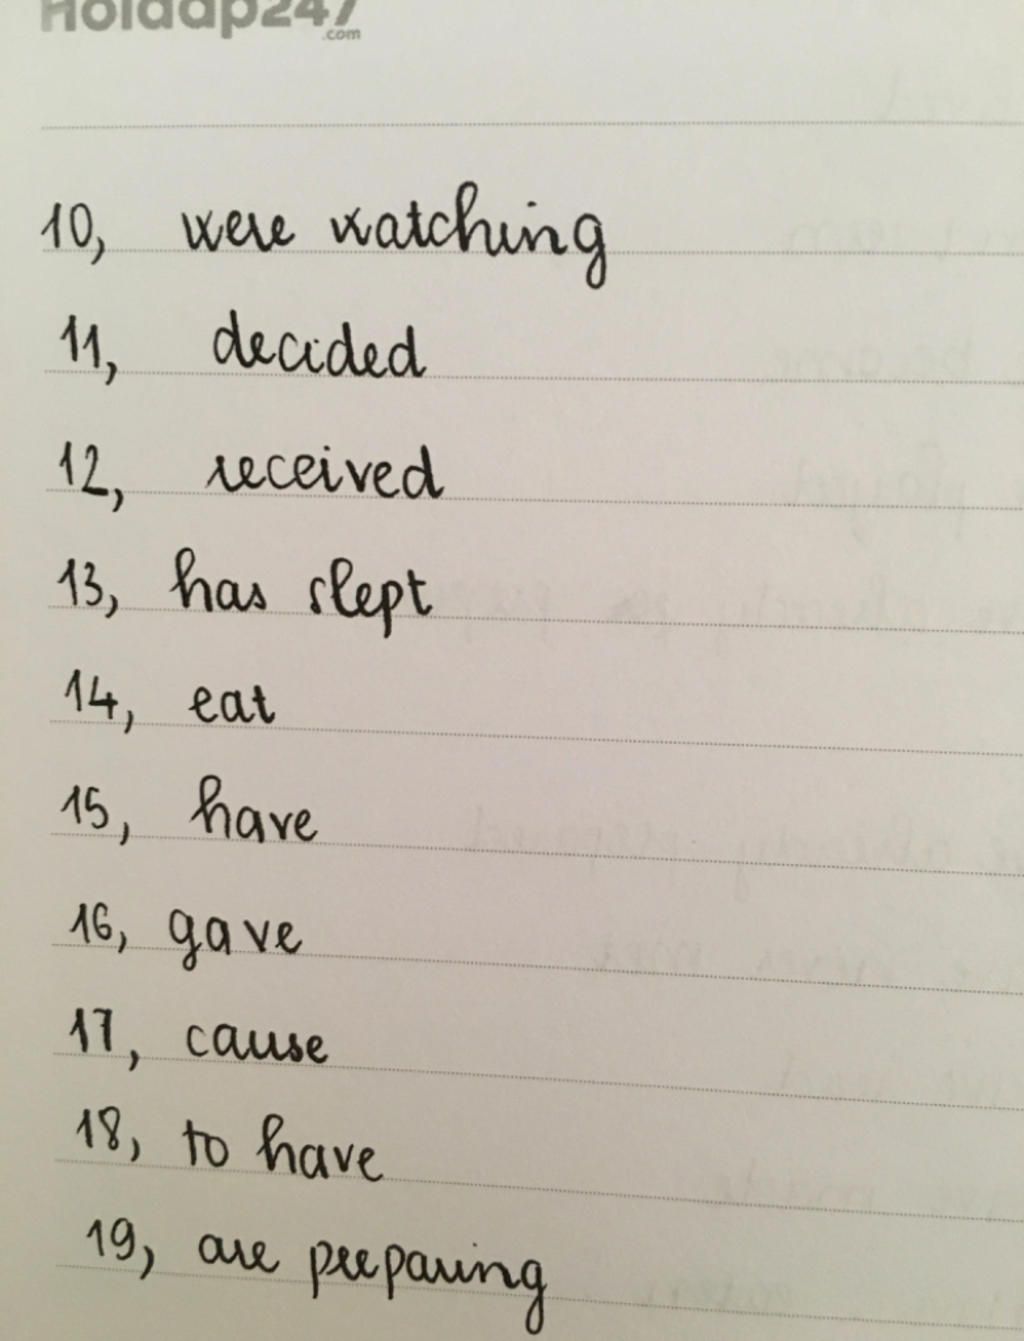 Hoidap247
.com
10, were watching
11, decided
12, received
13, has slept
14, eat
15, have
16, gave
17, cause
18, to have
19, are preparing